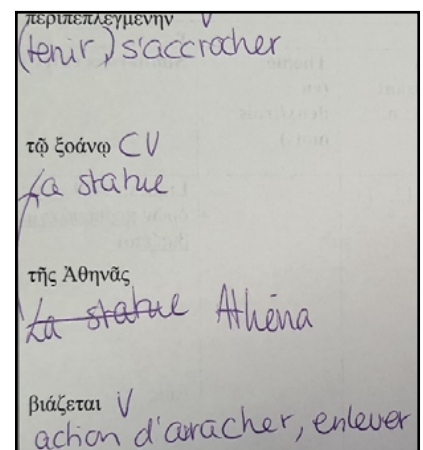 περιπεπλεγμένην V
(tenir,) s'accrocher
τῷ ξοάνῳ CV
La statue
τῆς Ἀθηνᾶς
La statue Athéna
βιάζεται V
action d'arracher, enlever